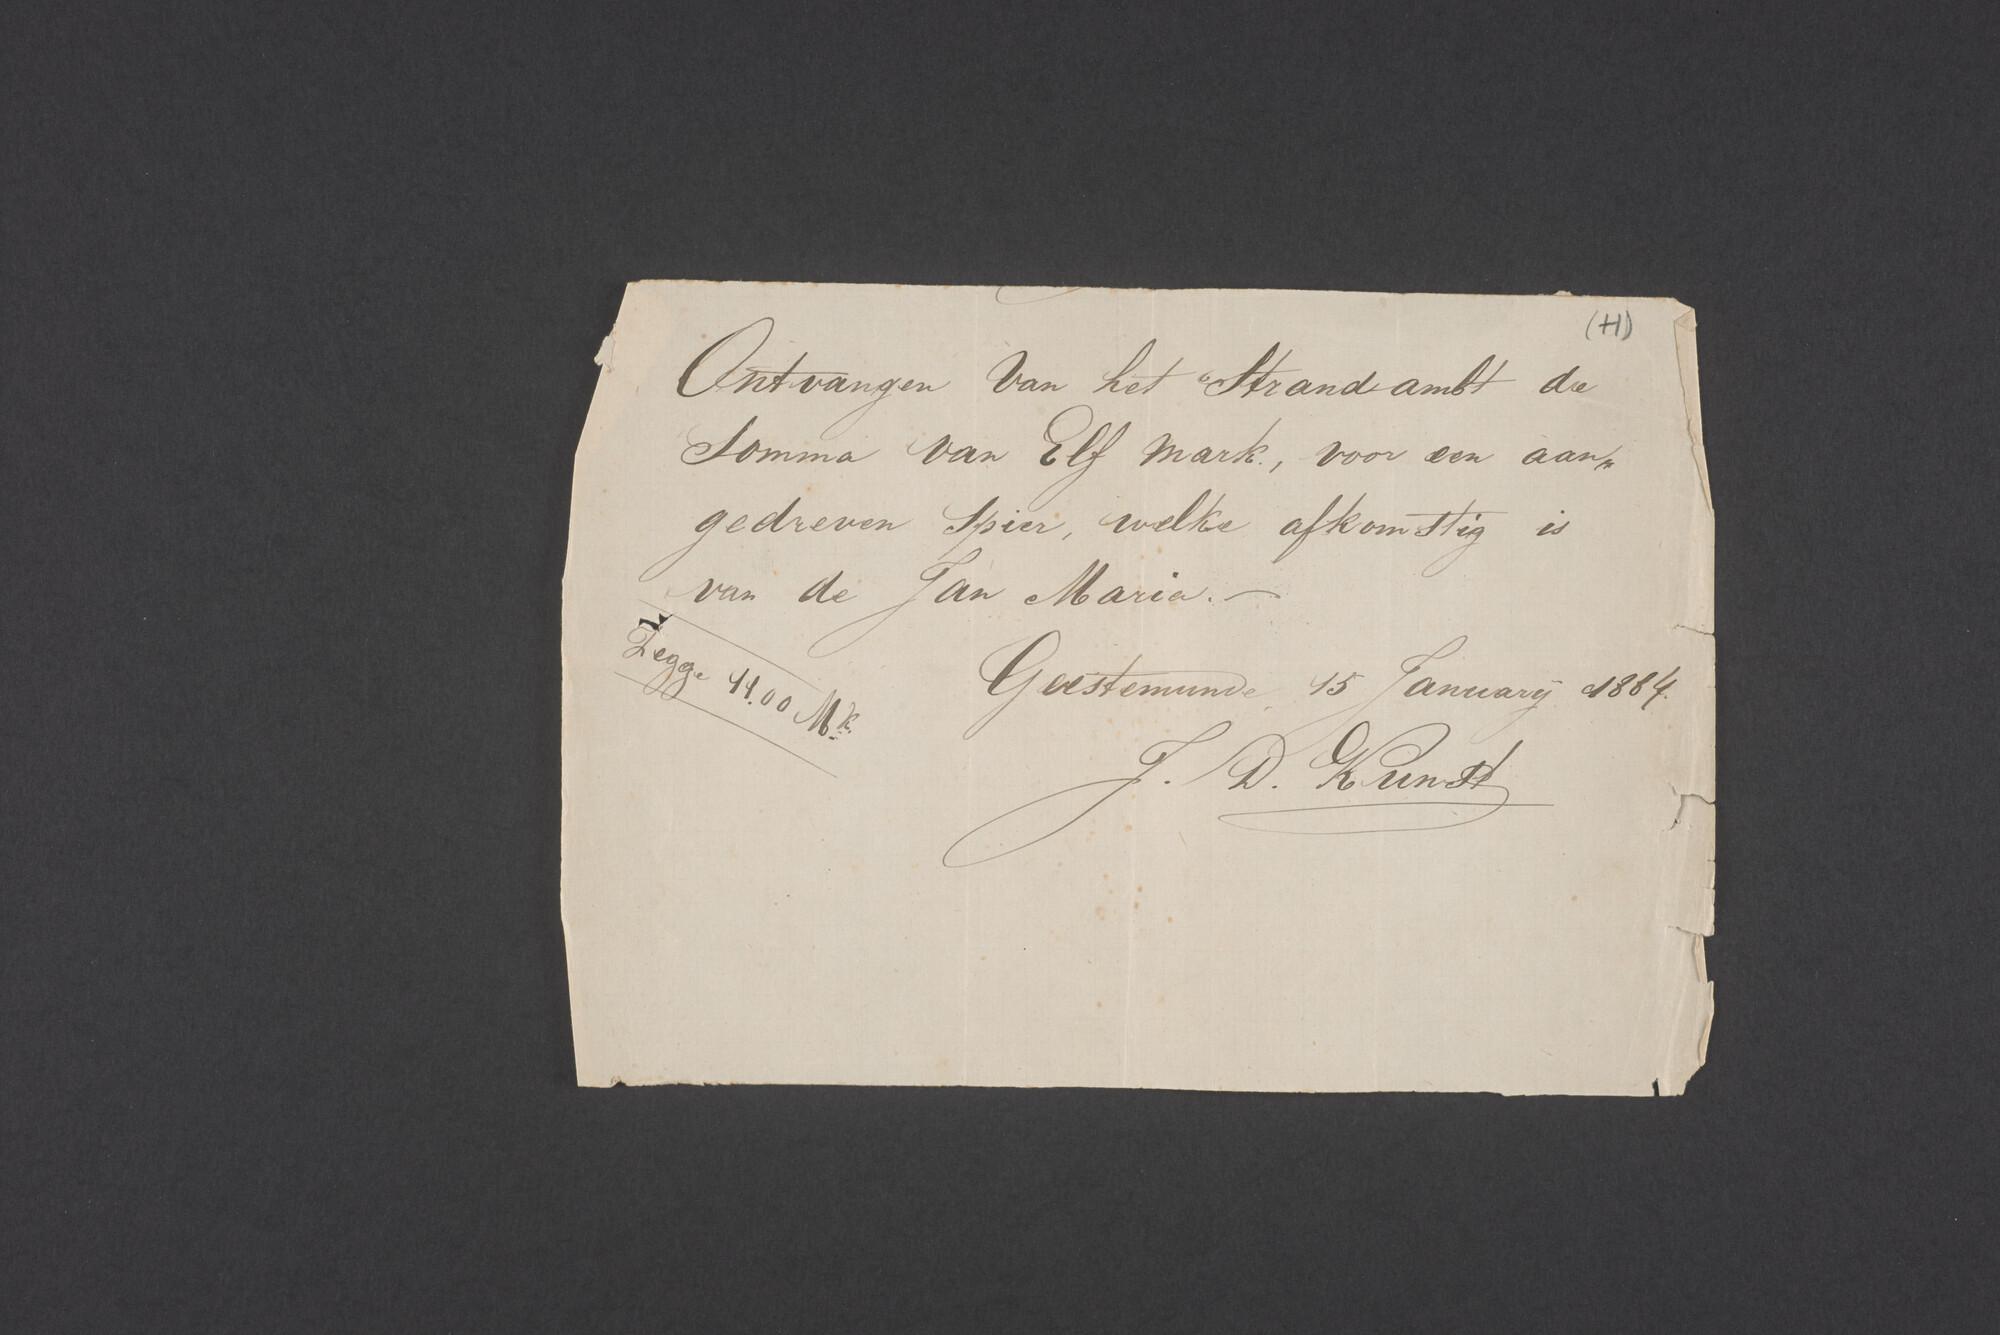 (H)
Ontvangen van het Strandambt de
Somma van Elf Mark, voor een aan„
gedreven Spier, welke afkomstig is
van de Jan Maria. —
Zegge 11.00 Mk.
Geestemunde, 15 Januarij 1884.
J. D. Kunst